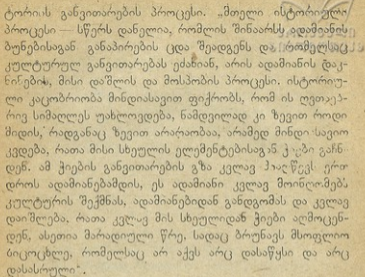 ტორიის განვითარების პროცესი. „მთელი ისტორიული
პროცესი — სწერს დანელია, რომლის შინაარსს ადამიანის
ბუნებისაგან განაპირების ცდა შეადგენს და რომელსაც
კულტურულ განვითარებას ეძახიან, არის ადამიანის დაკ-
ნინების, მისი დაშლის და მოსპობის პროცესი. ისტორიუ-
ლი კაცობრიობა მინდიასავით ფიქრობს, რომ ის ღვთაებ-
რივ სიმაღლეს უახლოვდება, ნამდვილად კი ზევით როდი
მიდის, რადგანაც ზევით არარაობაა, არამედ მინდიასავით
კვდება, რათა მისი სხეულის ელემენტებისაგან ჭიები გაჩნ-
დენ. ამ ჭიების განვითარების გზა კვლავ ჰაღწევს ერთ
დროს ადამიანებამდის, ეს ადამიანი კვლავ მოინდომებს
კულტურის შექმნას, ადამიანებიდან განდგომას და კვლავ
დაიშლება. რათა კვლავ მის სხეულიდან ჭიები აღმოცენ-
დენ, ასეთია მარადიული წრე, სადაც ბრუნავს მსოფლიო
სიცოცხლე, რომელსაც არ აქვს არც დასაწყსი და არც
დასასრული“.